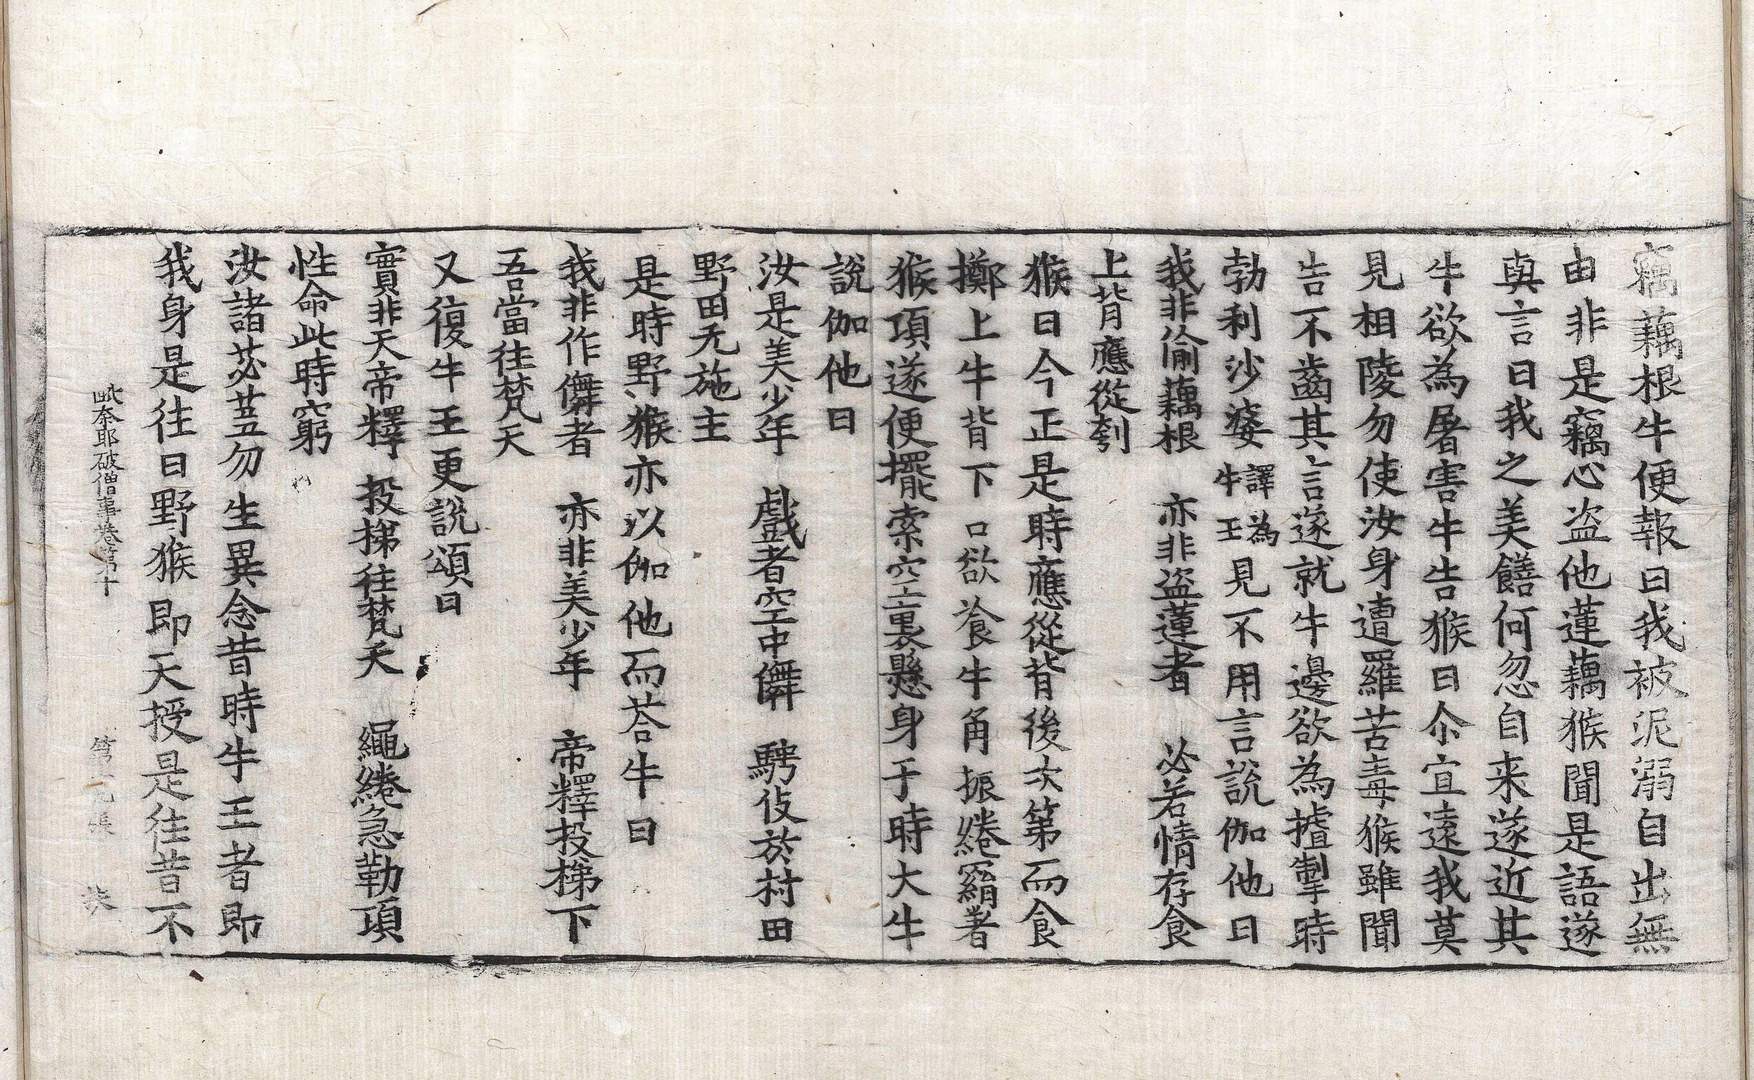 竊藕根牛便報曰我被泥溺自出無
由非是竊心盜他蓮藕猴聞是語遂
與言曰我之美饍何忽自来遂近其
牛欲為屠害牛告猴曰尒宜遠我莫
見相陵勿使汝身遭羅苦毒猴雖聞
告不齒其言遂就牛邊欲為揸掣時
勃利沙婆譯為牛王見不用言說伽他曰
我非偷藕根　亦非盜蓮者　必若情存食
上背應從刳
猴曰今正是時應從背後次第而食
擲上牛背下口欲飡牛角振綣羂著
猴項遂便擺索空裏懸身于時大牛
說伽他曰
汝是美少年　戲者空中儛　騁伎於村田
野田无施主
是時野猴亦以伽他而荅牛曰
我非作儛者　亦非美少年　帝釋投梯下
吾當往梵天
又復牛王更說頌曰
實非天帝釋　投梯往梵天　繩綣急勒項
性命此時窮
汝諸苾芻勿生異念昔時牛王者即
我身是往曰野猴即天授是往昔不
毗奈耶破僧事卷第十　第　張